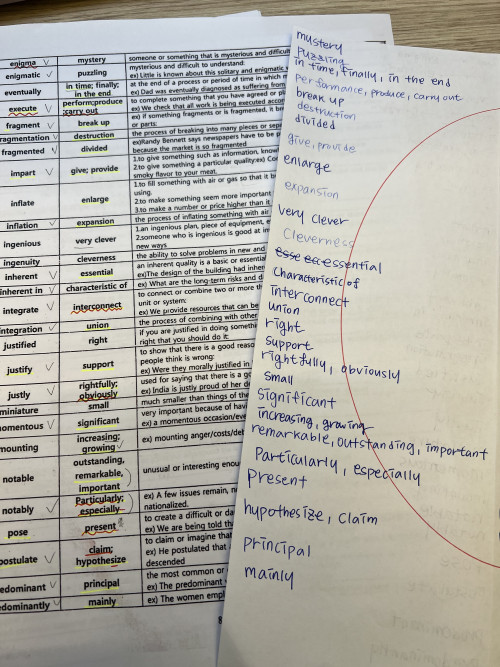 enigma mystery someone or something that is mysterious and difficult
enigmatic puzzling mysterious and difficult to understand:
ex) Little is known about this solitary and enigmatic
eventually in time; finally; in the end at the end of a process or period of time in which
ex) Dad was eventually diagnosed as suffering from
execute perform;produce ;carry out to complete something that you have agreed or
ex) We check that all work is being executed
fragment break up ex) if something fragments or is fragmented, it
or parts:
fragmentation destruction the process of breaking into many pieces or
fragmented divided ex)Randy Bennett says newspapers have to be
because the market is so fragmented
impart give; provide 1.to give something such as information,
2.to give something a particular quality:ex)
smoky flavor to your meat.
inflate enlarge 1.to fill something with air or gas so that it
using.
2.to make something seem more important
3.to make a number or price higher than it
inflation expansion the process of inflating something with air
ingenious very clever 1.an ingenious plan, piece of equipment,
2.someone who is ingenious is good at
new ways
ingenuity cleverness the ability to solve problems in new and
inherent essential an inherent quality is a basic or essential
ex)The design of the building had
inherent in characteristic of ex) What are the long-term risks and
integrate interconnect to connect or combine two or more
unit or system:
ex) We provide resources that can be
integration union the process of combining with other
justified right if you are justified in doing
right that you should do it:
justify support to show that there is a good
people think is wrong:
ex) Were they morally justified in
justly rightfully; obviously used for saying that there is a
ex) India is justly proud of her
miniature small much smaller than things of the
momentous significant very important because of
ex) a momentous
mounting increasing; growing ex) mounting anger/costs/
notable outstanding, remarkable, important unusual or interesting
notably Particularly; especially ex) A few issues remain,
nationalized.
pose present to create a difficult or
ex) We are being told
postulate claim; hypothesize to claim or imagine that
ex) He postulated that
descended
predominant principal the most common or
ex) The predominant
predominantly mainly ex) The women
8
mystery
puzzling
in time, finally, in the end
performance, produce, carry out
break up
destruction
divided
give, provide
enlarge
expansion
very clever
Cleverness
essential
characteristic of
interconnect
union
right
support
rightfully, obviously
small
significant
increasing, growing
remarkable, outstanding, important
Particularly, especially
Present
hypothesize, claim
principal
mainly